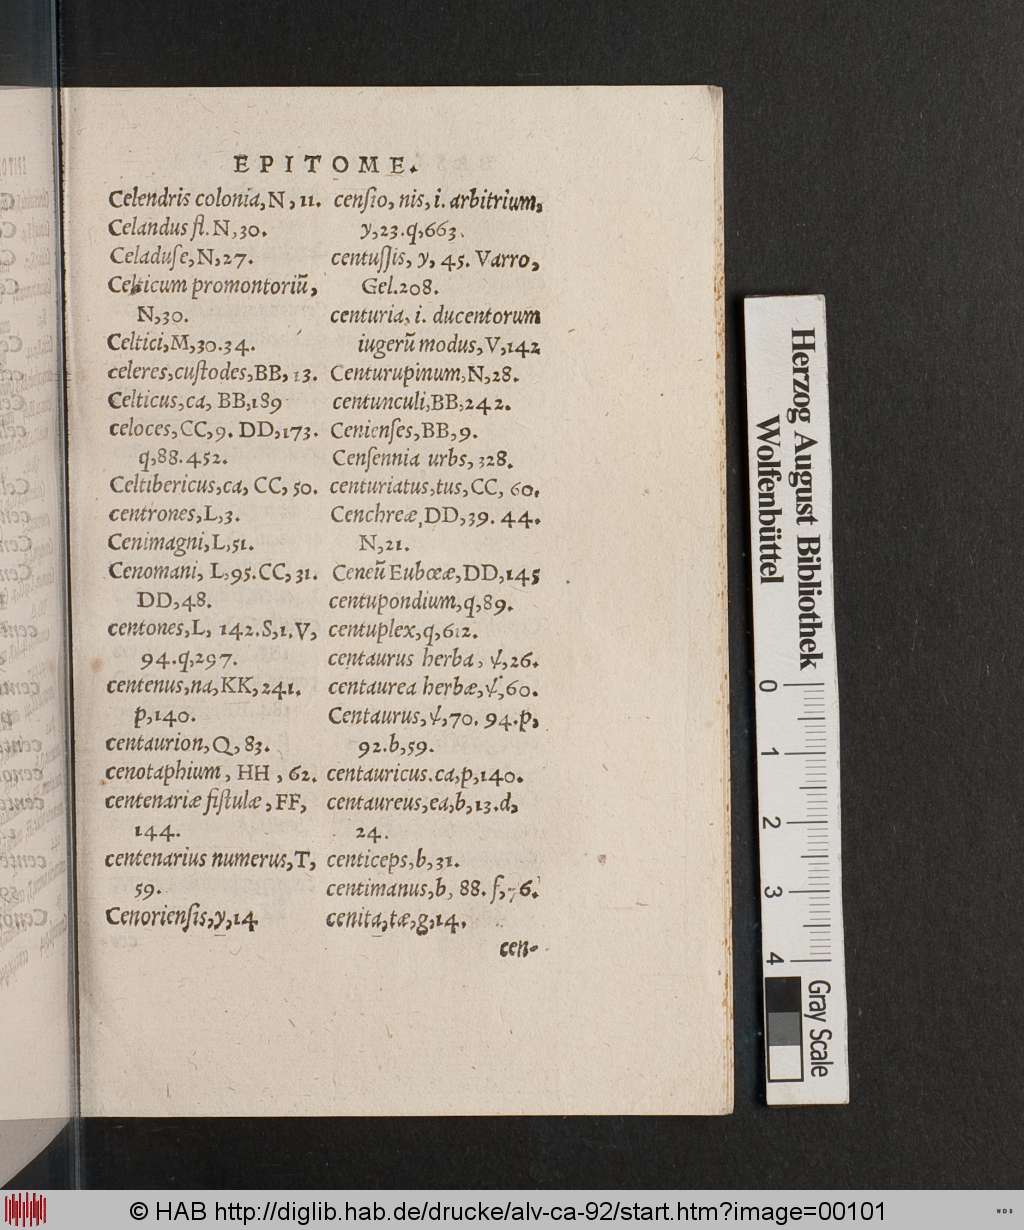 EPITOME.
Celendris colonia, N, 11.
Celandus fl. N, 30.
Celaduſe, N, 27.
Celticum promontoriū,
N, 30.
Celtici, M, 30. 34.
celeres, cuſtodes, BB, 13.
Celticus, ca, BB, 189
celoces, CC, 9. DD, 173.
q, 88. 452.
Celtibericus, ca, CC, 50.
centrones, L, 3.
Cenimagni, L, 51.
Cenomani, L, 95. CC, 31.
DD, 48.
centones, L, 142. S, 1. V,
94. q, 297.
centenus, na, KK, 241.
p, 140.
centaurion, Q, 83.
cenotaphium, HH, 62.
centenariæ fiſtulæ, FF,
144.
centenarius numerus, T,
59.
Cenorienſis, y, 14
cenſio, nis, i. arbitrium,
y, 23. q, 663.
centuſſis, y, 45. Varro,
Gel. 208.
centuria, i. ducentorum
iugerū modus, V, 142
Centurupinum, N, 28.
centunculi, BB, 242.
Cenienſes, BB, 9.
Cenſennia urbs, 328.
centuriatus, tus, CC, 60.
Cenchreæ, DD, 39. 44.
N, 21.
Ceneū Eubœæ, DD, 145
centupondium, q, 89.
centuplex, q, 612.
centaurus herba, ψ, 26.
centaurea herbæ, ψ, 60.
Centaurus, ψ, 70. 94. p,
92. b, 59.
centauricus. ca, p, 140.
centaureus, ea, b, 13. d,
24.
centiceps, b, 31.
centimanus, b, 88. ſ, 76.
cenita, tæ, g, 14.
cen-
Herzog August Bibliothek
Wolfenbüttel
0 1 2 3 4
Gray Scale
© HAB http://diglib.hab.de/drucke/alv-ca-92/start.htm?image=00101